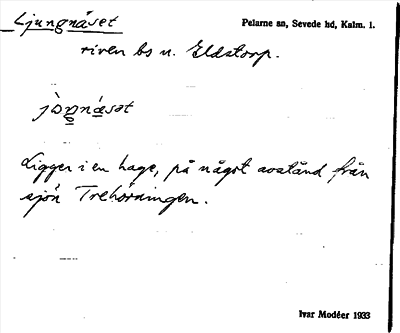 Ljungnäset
Pelarne sn, Sevede hd, Kalm. l.
riven bs u. Eldstorp.
Ligger i en hage, på något avstånd från
sjön Trehörningen.
Ivar Modéer 1933